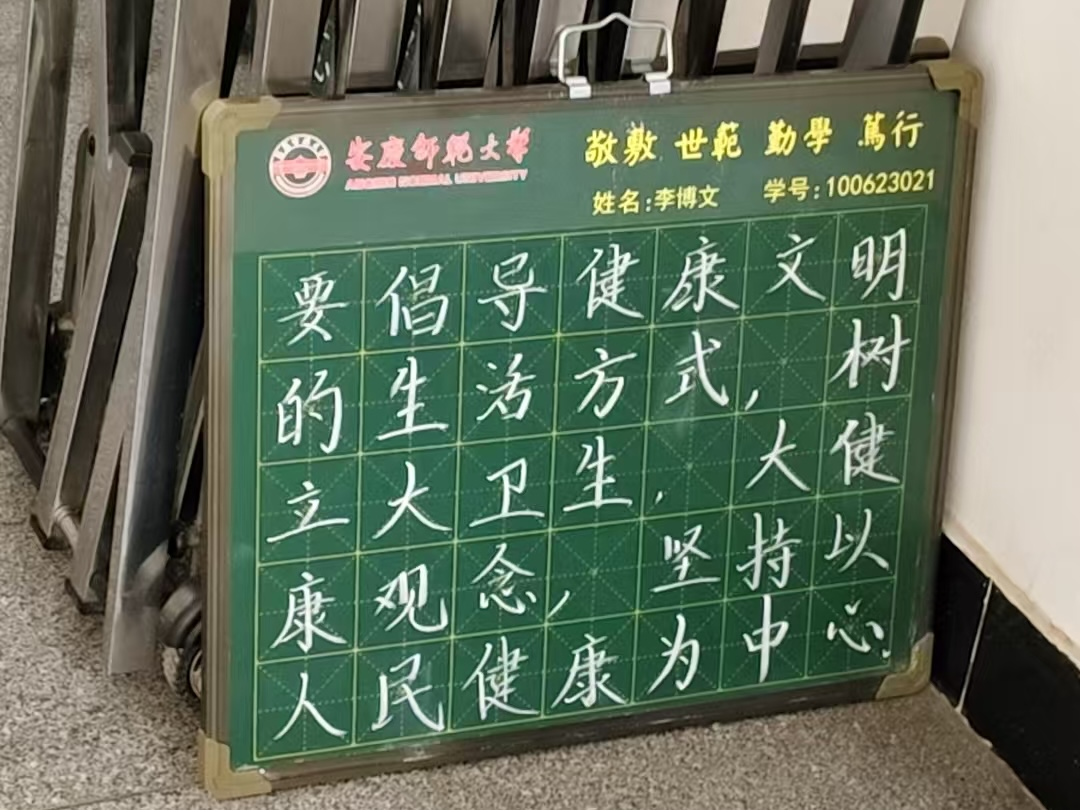 安慶師範大學
ANQING NORMAL UNIVERSITY
敬敷 世範 勤學 篤行
姓名:李博文 学号:100623021
要倡导健康文明
的生活方式,树
立大卫生,大健
康观念,坚持以
人民健康为中心。